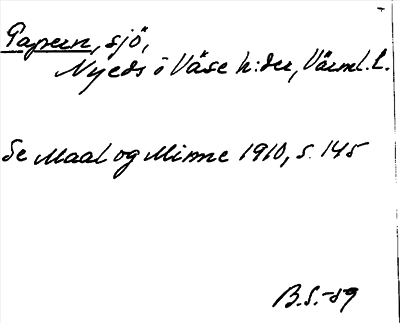 Papern, sjö,
Nyeds o Väse h:der, Värml. l.
Se Maal og Minne 1910, s. 145
B.S.-89